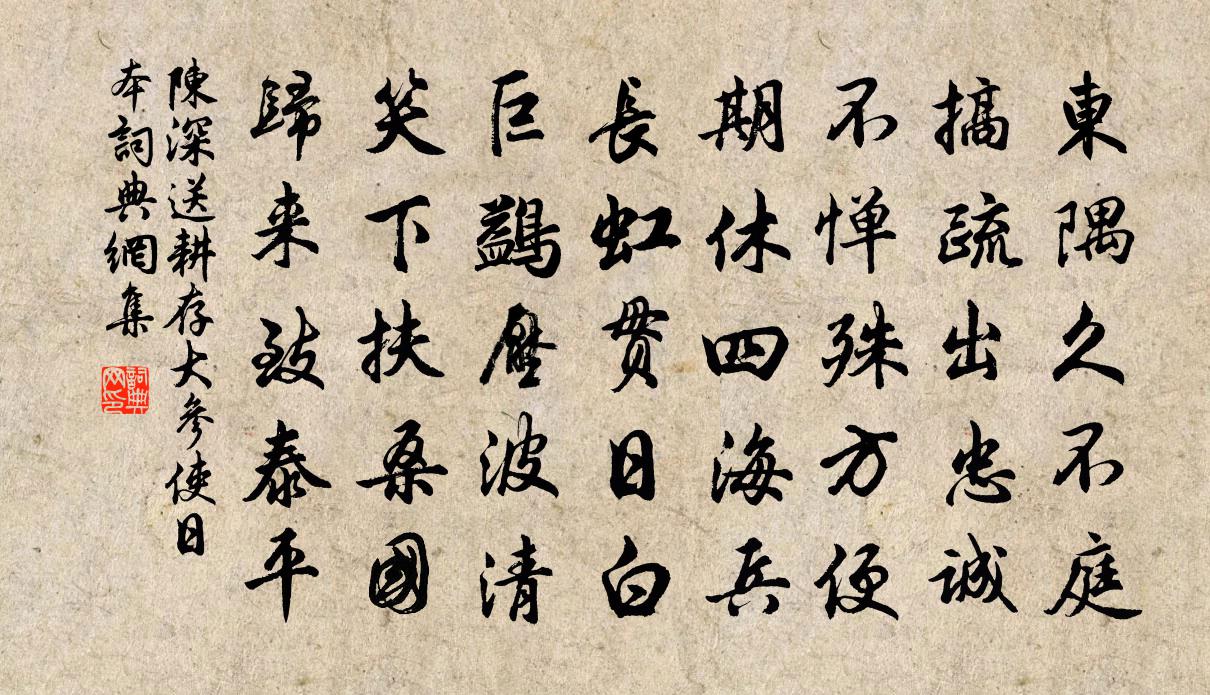 東隅久不庭
搞疏出忠誠
不惮殊方便
期休四海兵
長虹貫日白
巨鷁壓波清
笑下扶桑國
歸来致泰平
陳深送耕存大參使日
本詞典網集
詞典网印